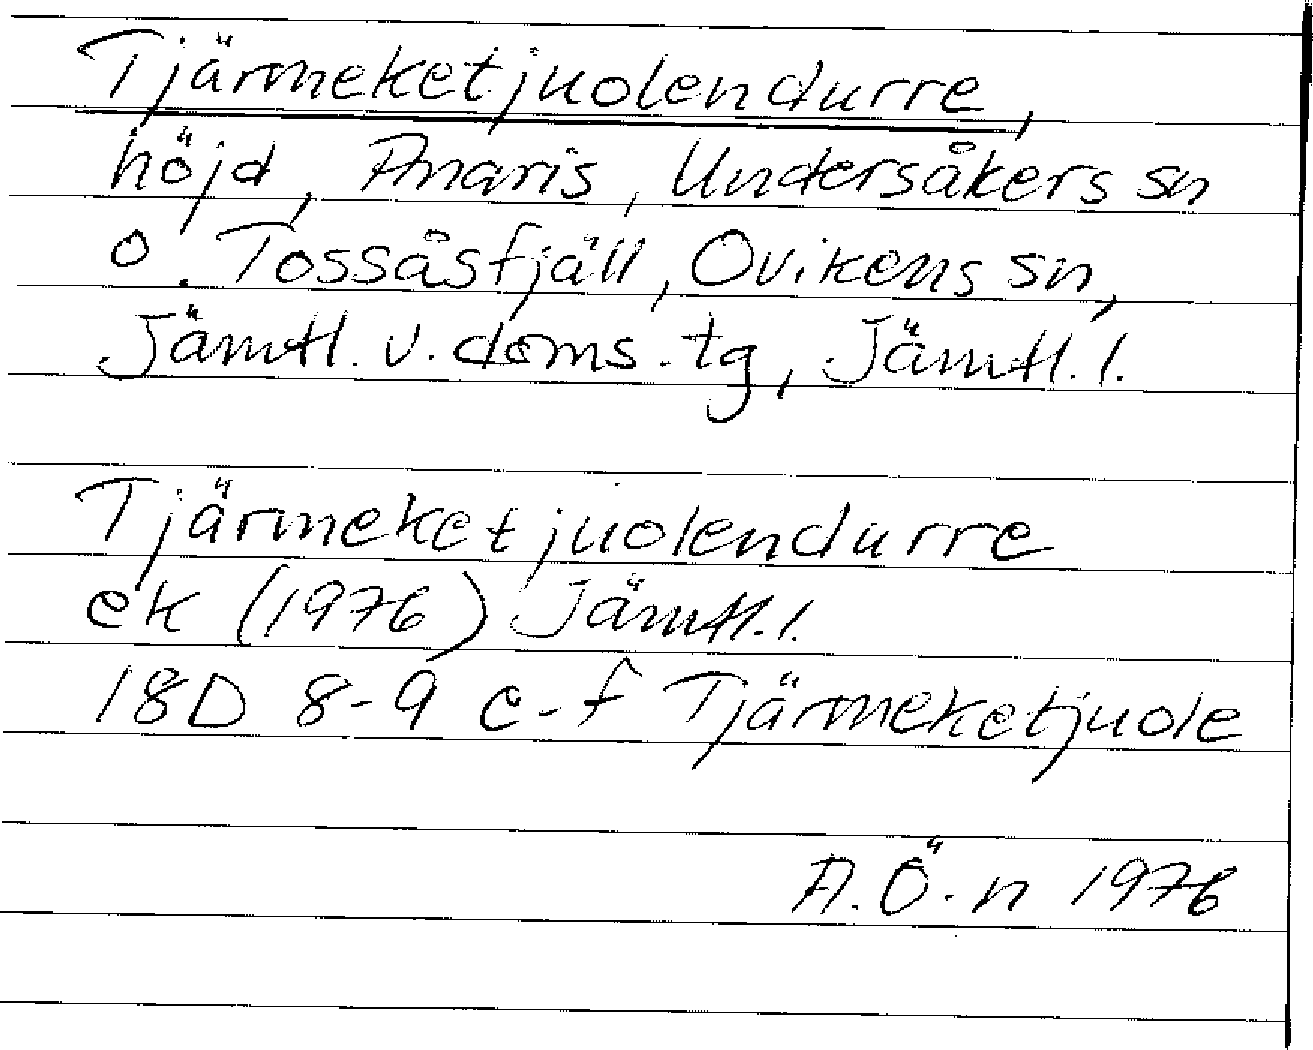 Tjärmeketjuolendurre,
höjd, Anaris, Undersåkers sn
o. Tossåsfjäll, Ovikens sn,
Jämtl. v. doms. tg, Jämtl. l.
Tjärmeketjuolendurre
ek (1976) Jämtl. l.
18D 8-9 e-f Tjärmeketjuole
A. Ö-n 1976